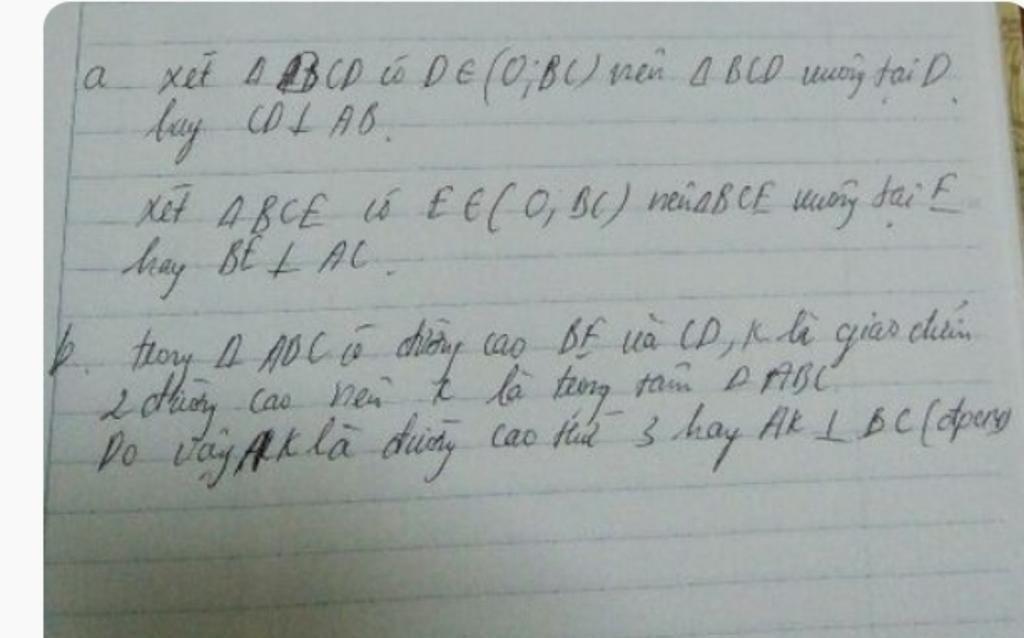 a xét Δ BCD có D ∈ (O; BC) nên Δ BCD vuông tại D.
hay CD ⊥ AB.
xét Δ BCE có E ∈ (O; BC) nên Δ BCE vuông tại E
hay BE ⊥ AC.
b. trong Δ ABC có đường cao BE và CD, K là giao điểm
2 đường cao nên K là trọng tâm Δ ABC
Do vậy AK là đường cao thứ 3 hay AK ⊥ BC (đpcm)